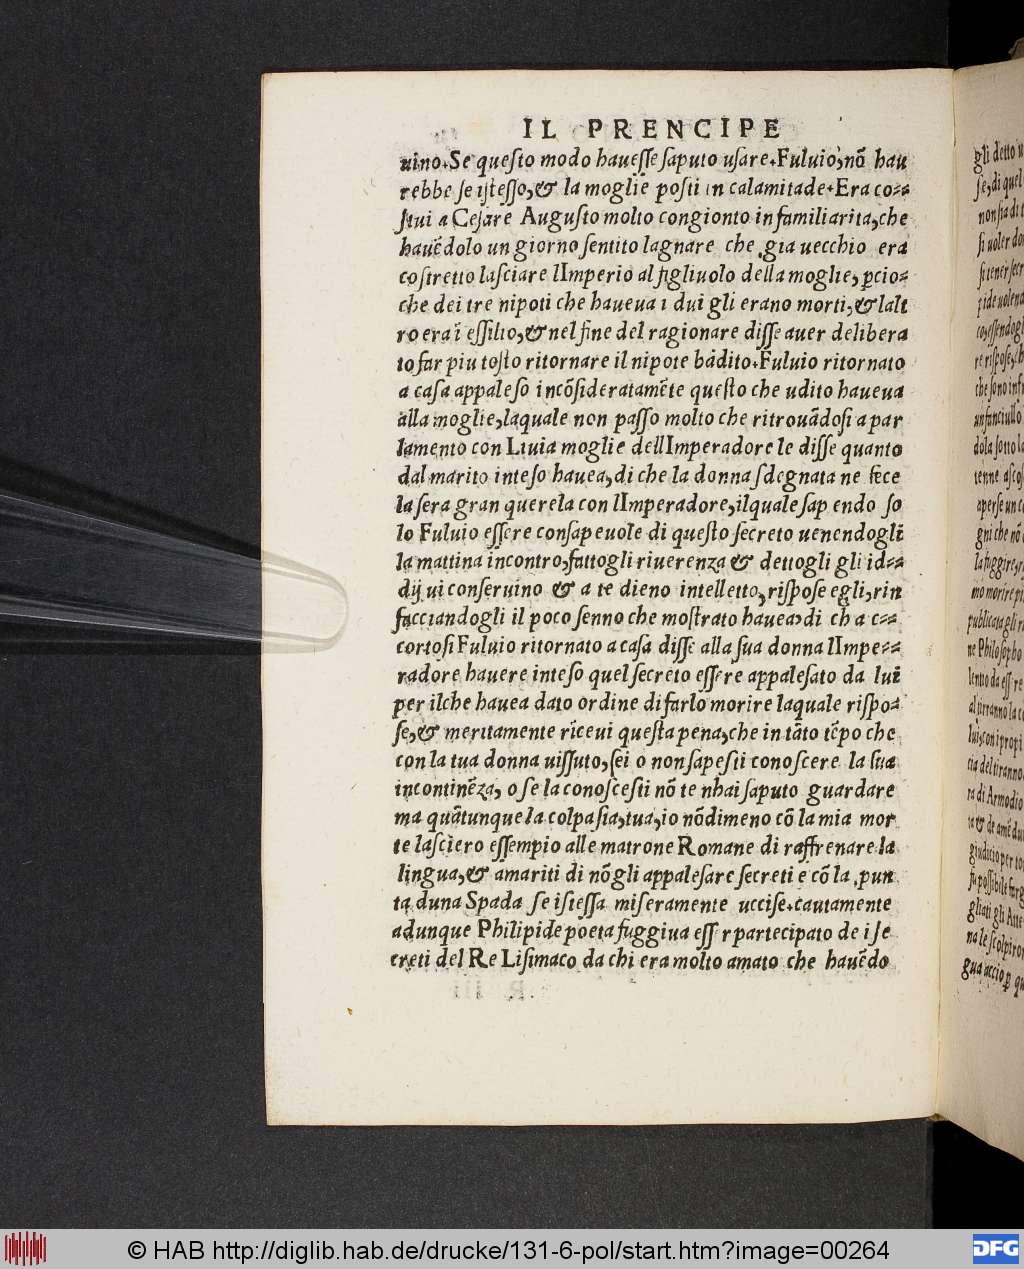 IL PRENCIPE
uino. Se questo modo hauesse saputo usare. Fuluio, nõ hau
rebbe se istesso, & la moglie posti in calamitade. Era co=
stui a Cesare Augusto molto congionto in familiarita, che
hauẽdolo un giorno sentito lagnare che gia uecchio era
costretto lasciare lImperio al figliuolo della moglie, ꝑcio=
che dei tre nipoti che haueua i dui gli erano morti, & lalt
ro era ĩ essilio, & nel fine del ragionare disse auer delibera
to far piu tosto ritornare il nipote bãdito. Fuluio ritornato
a casa appaleso incõsideratamẽte questo che udito haueua
alla moglie, laquale non passo molto che ritrouãdosi a par
lamento con Liuia moglie dellImperadore le disse quanto
dal marito inteso hauea, di che la donna sdegnata ne fece
la sera gran querela con lImperadore, ilquale sap endo so
lo Fuluio essere consapeuole di questo secreto uenendogli
la mattina incontro, fattogli riuerenza & dettogli gli id=
dij ui conseruino & a te dieno intelletto, rispose egli, rin
facciandogli il poco senno che mostrato hauea, di ch a c=
cortosi Fuluio ritornato a casa disse alla sua donna lImpe=
radore hauere inteso quel secreto essere appalesato da lui
per ilche hauea dato ordine di farlo morire laquale rispo=
se, & meritamente riceui questa pena, che in tãto tẽpo che
con la tua donna uissuto, sei o non sapesti conoscere la sua
incontinẽza, o se la conoscesti nõ te nhai saputo guardare
ma quãtunque la colpa sia, tua, io nõdimeno cõ la mia mor
te lasciero essempio alle matrone Romane di raffrenare la
lingua, & amariti di nõgli appalesare secreti e cõ la pun
ta duna Spada se istessa miseramente uccise. cautamente
adunque Philipide poeta fuggiua esser partecipato de i se
creti del Re Lisimaco da chi era molto amato che hauẽdo
gli detto
se, di quel
non sia di
si uoler
si tener
re rispose,
che sono
un fanciullo
dola sotto la
tenne
gni che nõ
la fuggire,
mo morire
publicata gli
ne Philosopho
al tirranno la
luì, con i propi
cia del tiranno
ra di Armodio
giudicio per
fu possibile
gliati gli
na le scolpiro
gua uccio ꝑ
© HAB http://diglib.hab.de/drucke/131-6-pol/start.htm?image=00264
DFG